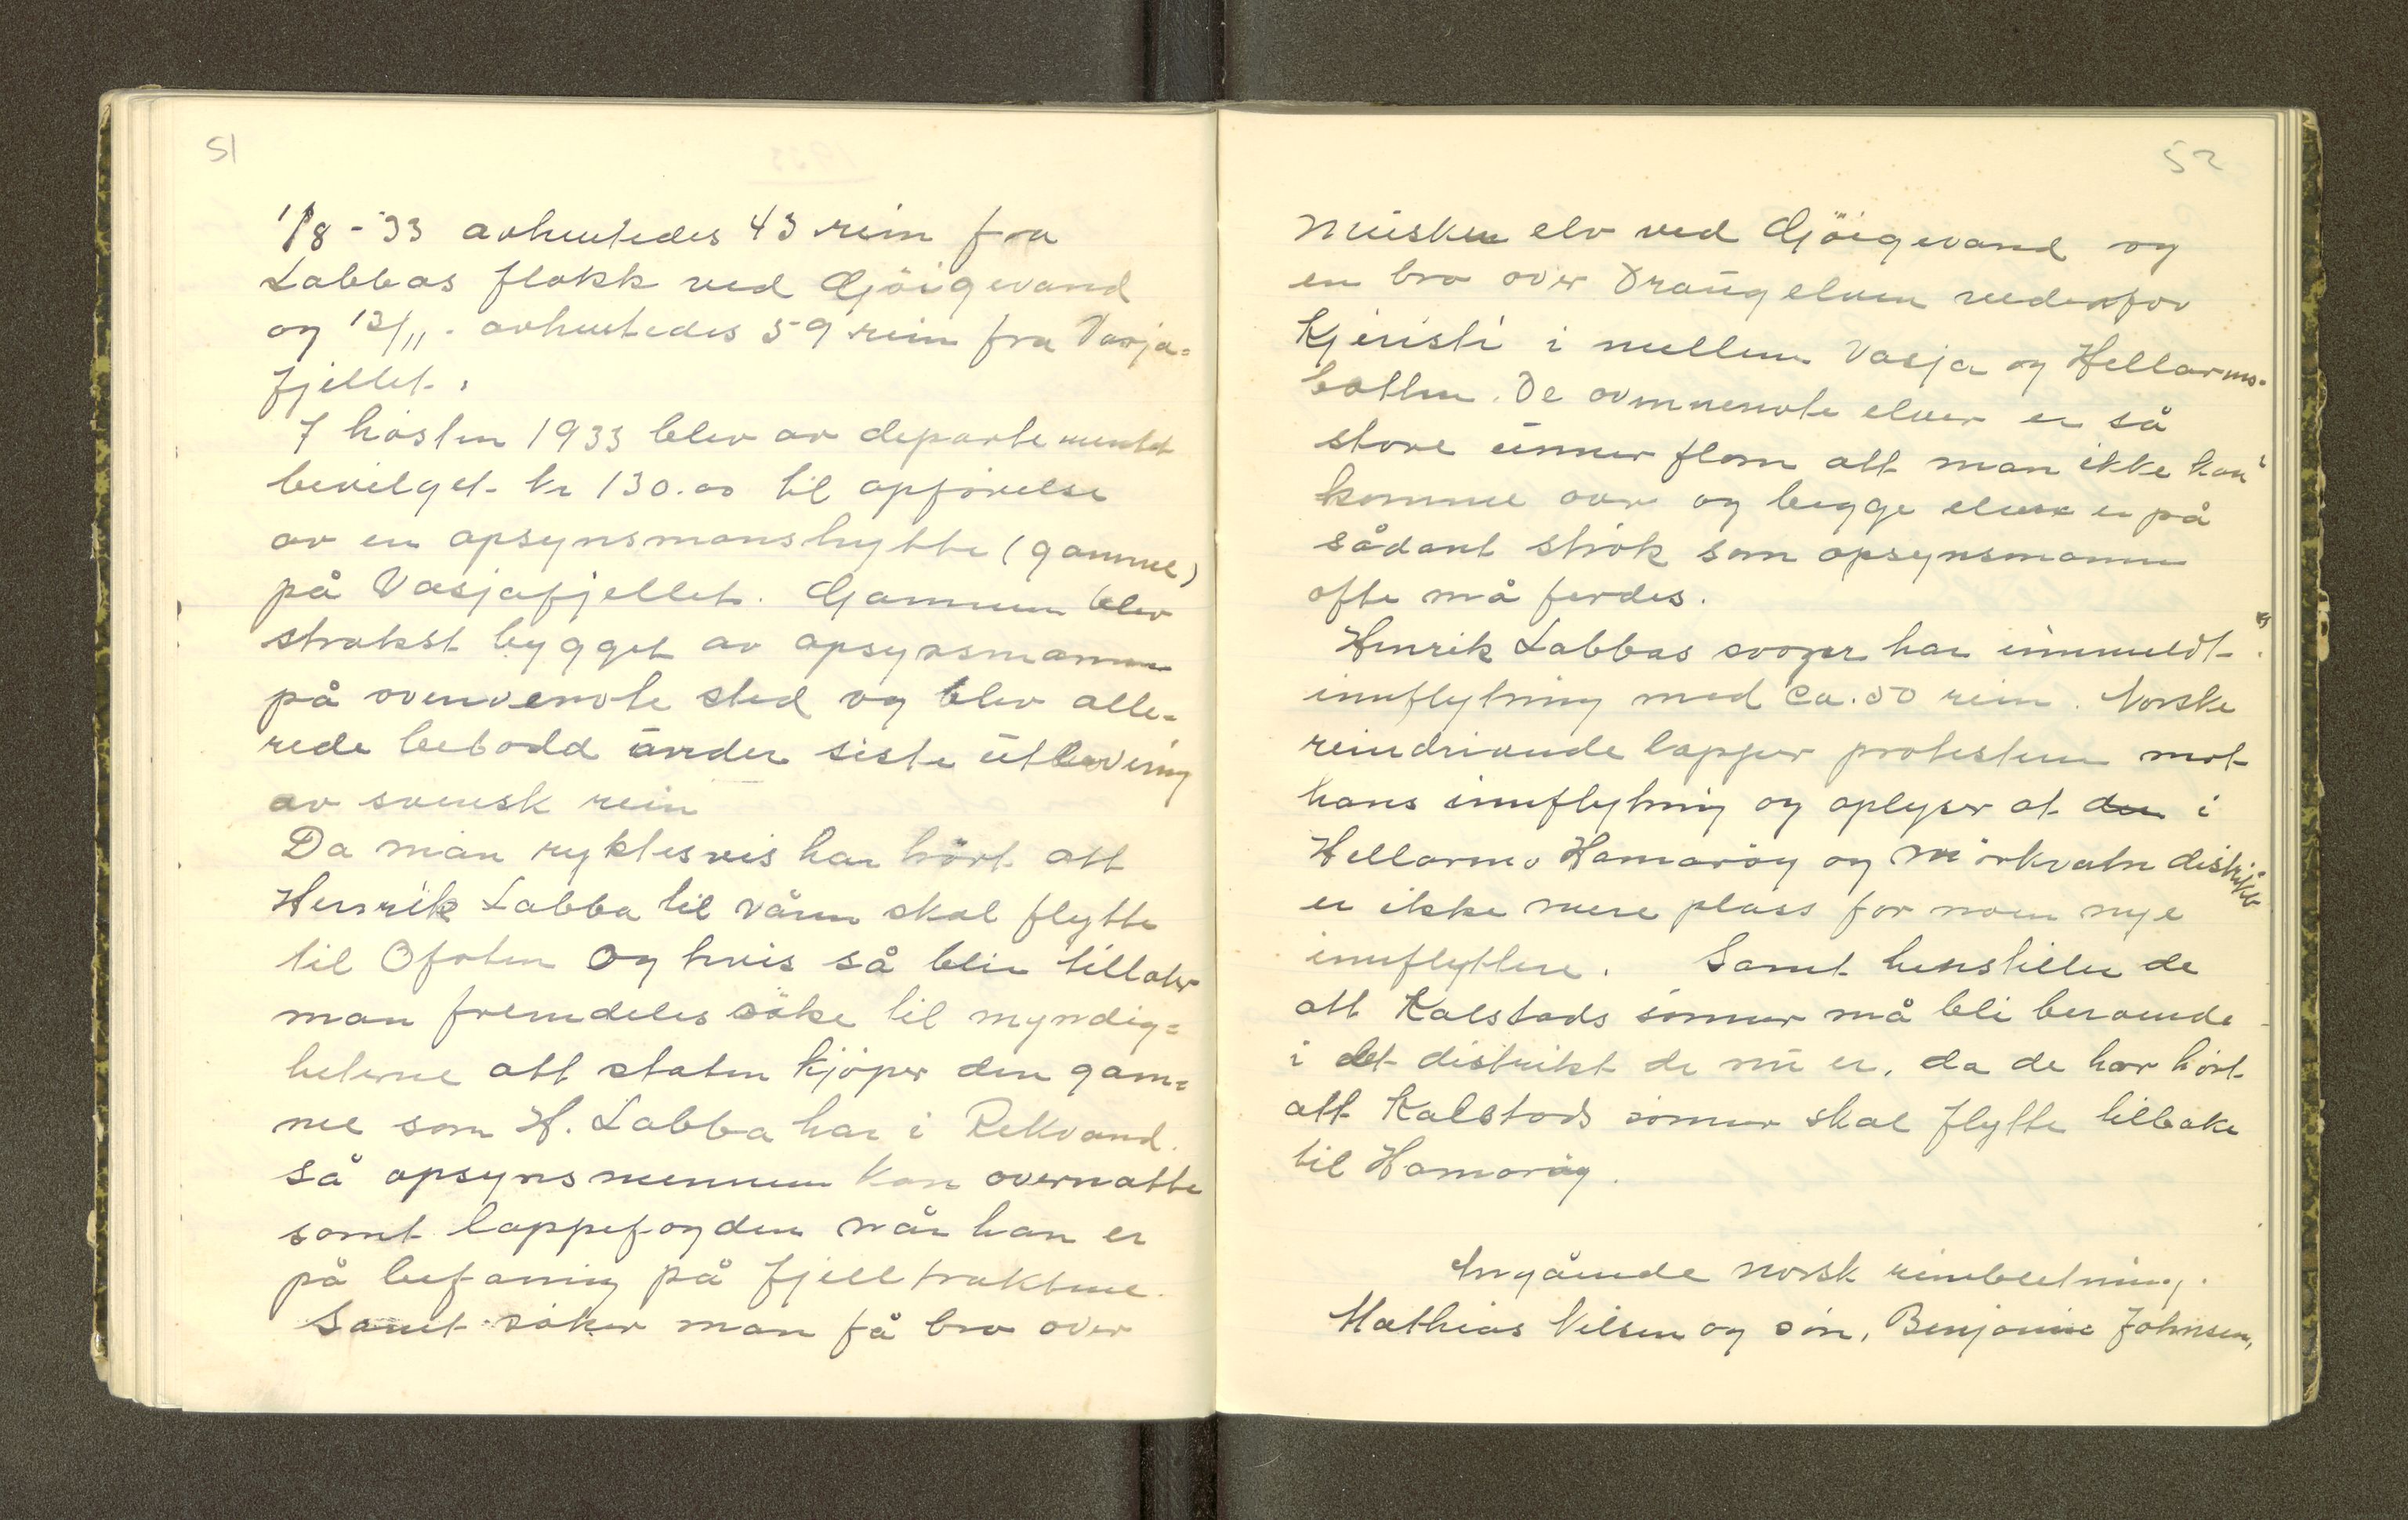 51
1/8 - 33 avhentedes 43 rein fra
Labbas flokk ved Gjöigevand
og 12/11. avhentedes 59 rein fra Vasja=
fjellet.
I hösten 1933 blev av departementet
bevilget kr 130.00 til opförelse
av en opsynsmanshytte (gamme)
på Vasjafjellet. Gammen blev
strakst bygget av opsynsmannen
på ovenvenvte sted og blev alle=
rede bebodd under siste utlevering
av svensk rein
Da man ryktesvis har hört att
Henrik Labba til våren skal flytte
til Ofoten og hvis så blir tillater
man fremdeles söke til myndig=
heterne att staten kjöper den gam=
me som H. Labba har i Rekvand.
så opsynsmennene kan overnatte
samt lappefogden når han er
på befaring på fjelltraktene.
Samt söker man få bro over
52
Müsken elv ved Gjöigevand og
en bro over Draugelven nedenfor
Kjeristi i mellem Vasja og Hellarmo=
botten. De ovennenvte elver er så
store unner flom att man ikke kan
komme over og begge elver er på
sådant strök som opsynsmannen
ofte må ferdes.
Henrik Labbas svoger har innmeldt
innflytning med ca. 50 rein. Norske
reindrivende lapper protesterer mot
hans innflytning og oplyser at den i
Hellarmo Hamaröy og Mörkvatn distrikt
er ikke mere plass for noen nye
innflyttere. Samt henstiller de
att Kalstads sönner må bli beroende
i det distrikt de nu er, da de har hört
att Kalstads sönner skal flytte tilbake
til Hamaröy.
Angående norsk reinbeitning.
Mathias Nilsen og sön, Benjamin Johnsen,